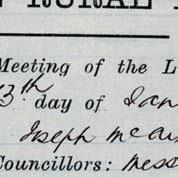 RURAL
Meeting of the L
3th day of Jan
Joseph McCa
Councillors: Mess